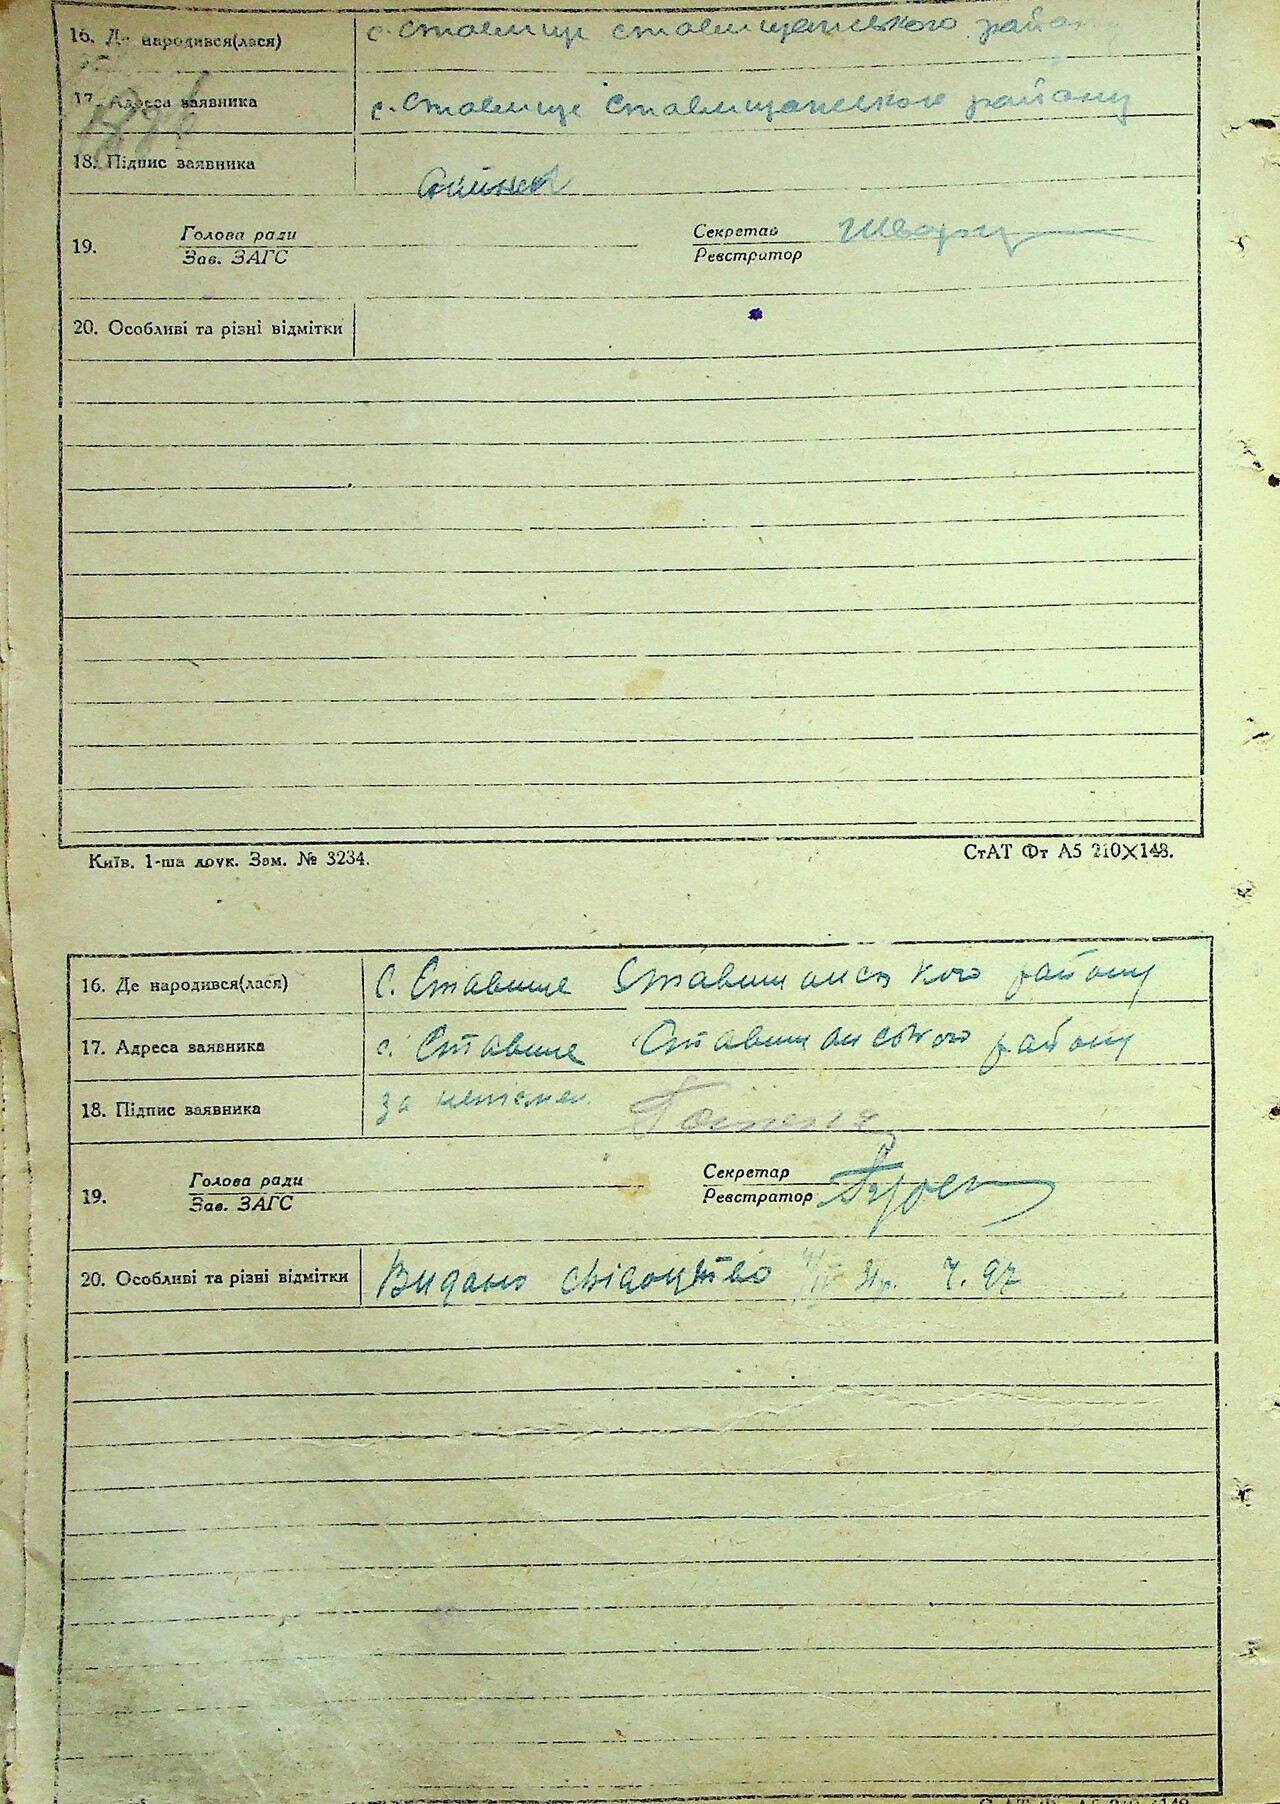 16. Де народився(лася) с. Ставище Ставищанського району
17. Адреса заявника с. Ставище Ставищанського району
18. Підпис заявника
19. Голова ради Секретар
Зав. ЗАГС Реєстратор
20. Особливі та різні відмітки
Київ. 1-ша друк. Зам. № 3234. СтАТ Фт А5 210×148.
16. Де народився(лася) С. Ставище Ставищанського району
17. Адреса заявника с. Ставище Ставищанського району
18. Підпис заявника за неписмен.
19. Голова ради Секретар
Зав. ЗАГС Реєстратор
20. Особливі та різні відмітки Видано свідоцтво